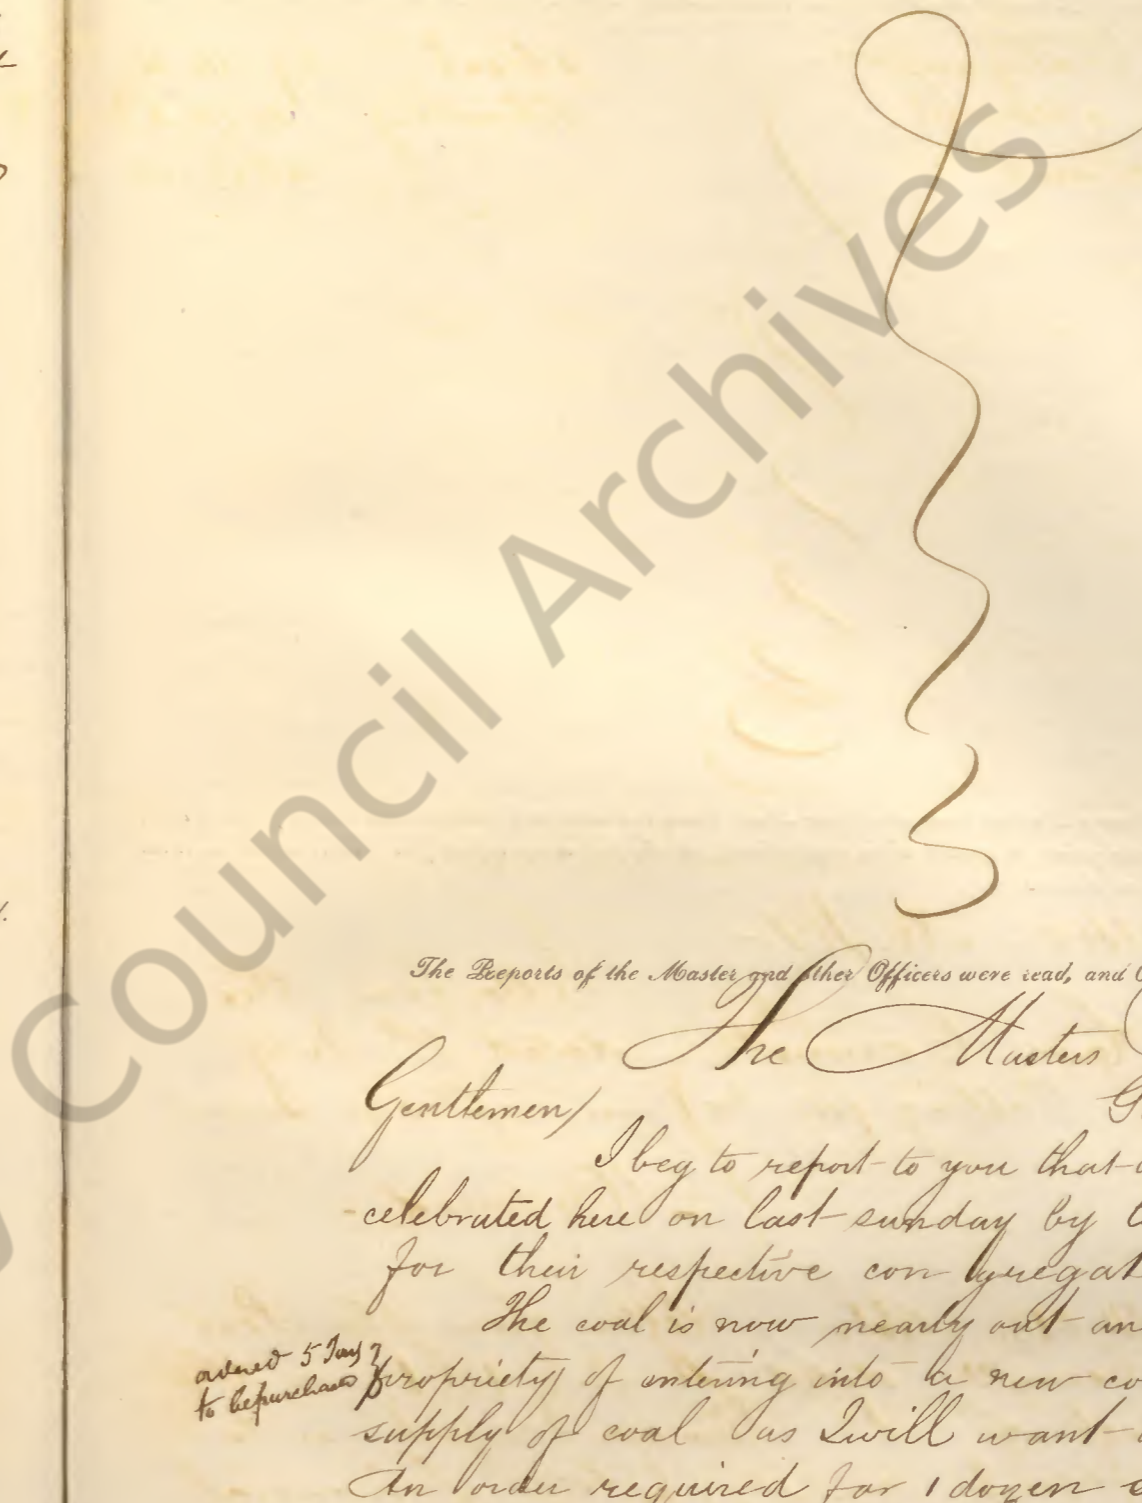 Council Archives
The Reports of the Master and other Officers were read, and
The Masters
Gentlemen/
I beg to report to you that
celebrated here on last sunday by
for their respective con gregat
The coal is now nearly out an
ordered 5 Tons
to be purchased
propriety of entering into a new co
supply of coal as I will want
An order required for 1 dozen